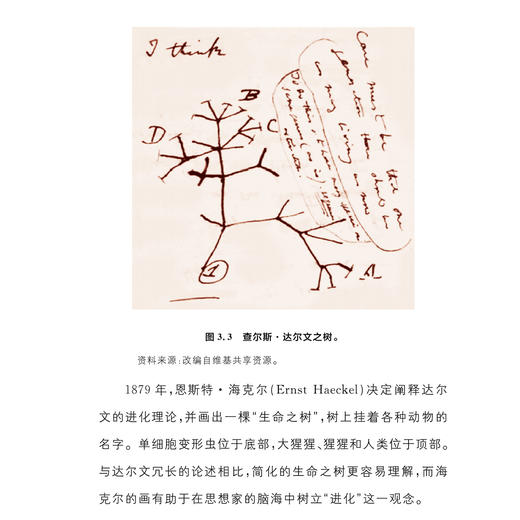 I think
Case must be that one
generation then should be
as many living as now
To do this & to have many species in
same genus (as is) requires
extinction
B
C
D
A
1
图 3.3 查尔斯·达尔文之树。
资料来源:改编自维基共享资源。
1879 年,恩斯特·海克尔(Ernst Haeckel)决定阐释达尔
文的进化理论,并画出一棵“生命之树”,树上挂着各种动物的
名字。单细胞变形虫位于底部,大猩猩、猩猩和人类位于顶部。
与达尔文冗长的论述相比,简化的生命之树更容易理解,而海
克尔的画有助于在思想家的脑海中树立“进化”这一观念。